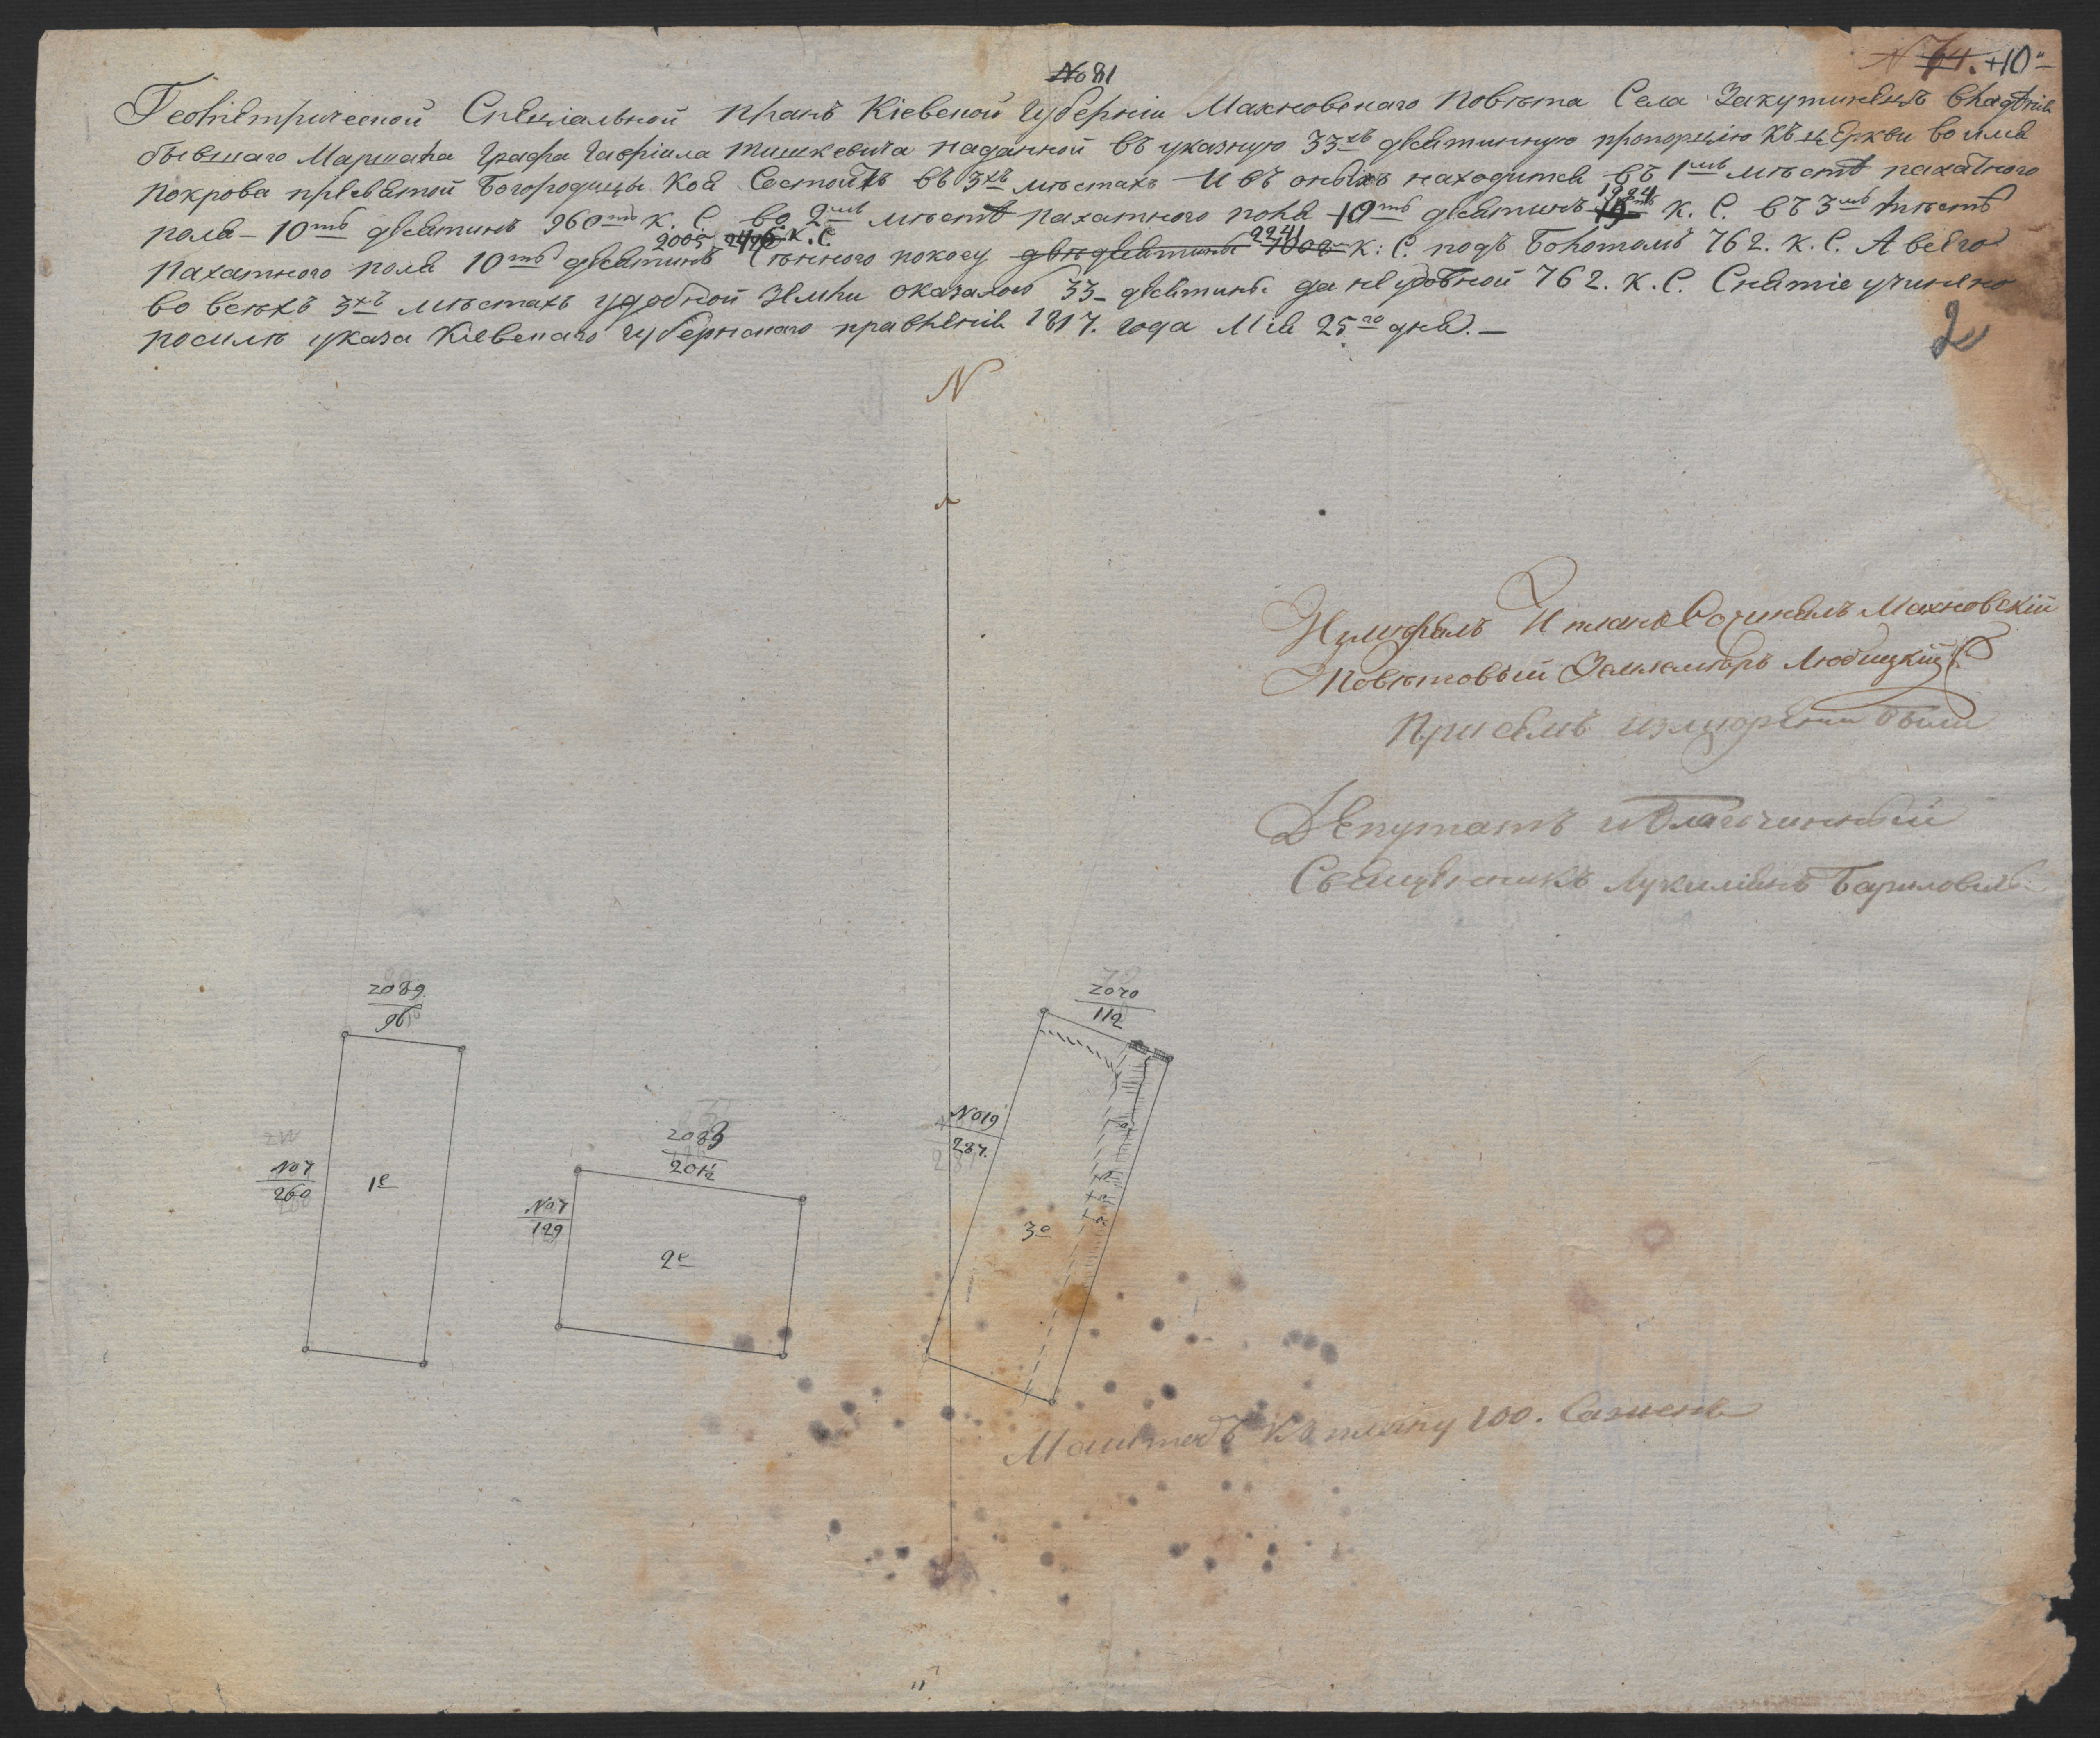 No 81
N 74. +10"
Геометрической Спеціальной планъ Кіевской Губерніи Махновскаго Повѣта Села Закутинецъ владѣнія
бывшаго Маршала Графа Гавріила Тишкевича наданной въ указную 33хъ десятинную пропорцію къ церкви во имя
покрова пресвятой Богородицы Коя Состоитъ въ 3хъ мѣстахъ И въ оныхъ находится въ 1мъ мѣстѣ пахатного
поля - 10ть десятинъ 960тъ к. С. во 2мъ мѣстѣ пахатного поля 10ть десятинъ 1994 к. С. въ 3мъ мѣстѣ
Пахатного поля 10ть десятинъ 2005 к. С. Сѣнного покосу двѣ десятины 2241 к: С. подъ Болотомъ 762. к. С. А всего
во всѣхъ 3хъ мѣстахъ удобной Земли оказалось 33 десятины да неудобной 762. К. С. Снятіе учинено
посилѣ указа Кіевскаго Губернскаго правленія 1817. года Мія 25го дня. —
2
N
Измѣрялъ И планъ Сочинялъ Махновскій
Повѣтовый Землемѣръ Любицкій
При семъ измѣреніи были
Депутатъ и Благочинный
Священникъ Лукиліянъ
2089
96
No 7
260
1е
2089
201½
No 7
129
2е
2070
112
No 19
287.
3е
Маштабъ къ плану 100. Сажень